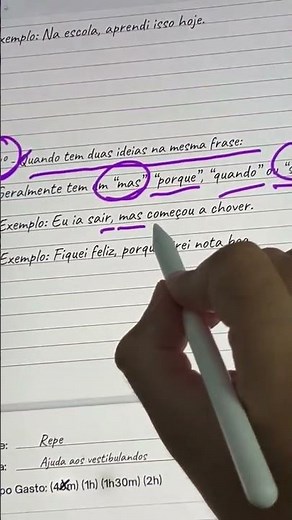 xemplo: Na escola, aprendi isso hoje.
Quando tem duas ideias na mesma frase:
Geralmente tem "mas" "porque", "quando" ou
Exemplo: Eu ia sair, mas começou a chover.
Exemplo: Fiquei feliz, porqu rei nota boa
e: Repe
a: Ajuda aos vestibulandos
po Gasto: (m) (1h) (1h30m) (2h)